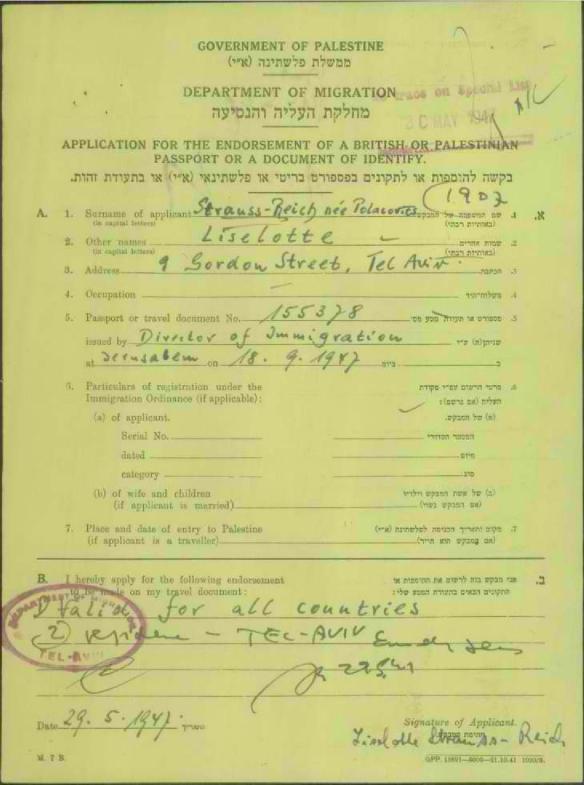 GOVERNMENT OF PALESTINE
ממשלת פלשתינה (א״י)
DEPARTMENT OF MIGRATION
on Special List
מחלקת העליה והנסיעה
30 MAY 1947
APPLICATION FOR THE ENDORSEMENT OF A BRITISH OR PALESTINIAN
PASSPORT OR A DOCUMENT OF IDENTIFY.
בקשה להוספות או לתקונים בפספורט בריטי או פלשתינאי (א״י) או בתעודת זהות.
(1907
A. 1. Surname of applicant Strauss-Reich née .1 א.
(in capital letters) (באותיות רבתי)
2. Other names Liselotte שמות אחרים .2
(in capital letters) (באותיות רבתי)
3. Address 9 Gordon Street, Tel Aviv. הכתבת .3
4. Occupation משלוח־היד .4
5. Passport or travel document No. 155378 פספורט או תעודת מסע מס׳ .5
issued by Director of Immigration שניתן(ה) ע״י
at Jerusalem on 18. 9. 1947 ביום ב
6. Particulars of registration under the פרטי הרשום עפ״י פקודת .6
Immigration Ordinance (if applicable): העליה (אם נרשם):
(a) of applicant. (א) של המבקש.
Serial No. המספר הסדורי
dated מיום
category סוג
(b) of wife and children (ב) של אשת המבקש וילדיו
(if applicant is married) (אם המבקש נשוי)
7. Place and date of entry to Palestine מקום ותאריך הכניסה לפלשתינה (א״י) .7
(if applicant is a traveller) (אם המבקש הוא תייר)
B. I hereby apply for the following endorsement אני מבקש בזה לרשום את ההוספות או ב.
to be made on my travel document: התקונים הבאים בתעודת המסע שלי:
DEPARTMENT OF
TEL-AVIV
Valid for all countries
2) - TEL-AVIV
Date 29. 5. 1947. תאריך
Signature of Applicant.
חתימת המבקש
Liselotte Strauss-Reich
M. 7 B.
GPP. 13691—5000—21.10.41